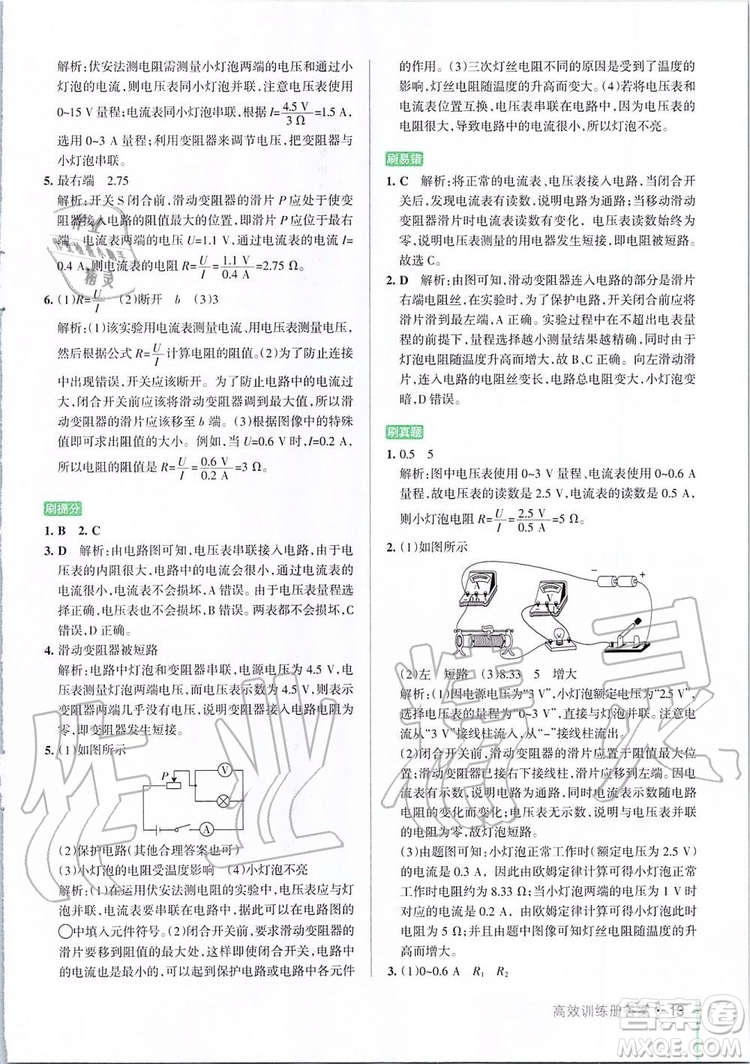 解析：伏安法测电阻需测量小灯泡两端的电压和通过小
灯泡的电流，则电压表与小灯泡并联，注意电压表使用
0~15 V 量程；电流表同小灯泡串联，根据 I=4.5 V/3 Ω=1.5 A，
选用 0~3 A 量程；利用变阻器来调节电压，把变阻器与
小灯泡串联。
5. 最右端　2.75
解析：开关 S 闭合前，滑动变阻器的滑片 P 应处于使变
阻器接入电路的阻值最大的位置，即滑片 P 应位于最右
端。电流表两端的电压 U=1.1 V，通过电流表的电流 I=
0.4 A，则电流表的电阻 R=U/I=1.1 V/0.4 A=2.75 Ω。
6. (1)R=U/I　(2)断开　b　(3)3
解析：(1)该实验用电流表测量电流、用电压表测量电压，
然后根据公式 R=U/I 计算电阻的阻值。(2)为了防止连接
中出现错误，开关应该断开。为了防止电路中的电流过
大，闭合开关前应该将滑动变阻器的阻值调到最大，所以
滑动变阻器的滑片应移到 b 端。(3)根据图像中的特殊
值可求出阻值的大小。例如，当 U=0.6 V 时，I=0.2 A，
所以电阻的阻值 R=U/I=0.6 V/0.2 A=3 Ω。
刷提分
1. B　2. C
3. D　解析：由电路图可知，电压表串联接入电路，由于电
压表的内阻很大，电路中的电流会很小，电流表几乎没有
电流，小于量程，电流表不会损坏，A 错误。由于电压表量程选
择正确，电压表也不会损坏，B 错误。两表都不会损坏，C
错误，D 正确。
4. 滑动变阻器被短路
解析：电路中灯泡和变阻器串联，电源电压为 4.5 V，电压
表测量灯泡两端电压，而电压表示数为 4.5 V，说明滑动
变阻器两端几乎没有电压，说明变阻器接入电路电阻为
零，即变阻器发生短接。
5. (1)如图所示
P
V
A
(2)保护电路(其他合理答案也可)
(3)小灯泡的电阻受温度的影响　(4)小灯泡不亮
解析：(1)在运用伏安法测电阻的实验中，电压表应与灯
泡并联，电流表要串联接入电路中，所以要在电路图的
○中填入元件符号。(2)闭合开关前，滑动变阻器的
滑片要移到阻值的最大处，这样即使闭合开关，电路中
的电流也不会过大，这样可以起到保护电路中各个元件
的作用。(3)三次灯丝电阻不同的原因是受到了温度的
影响，灯丝电阻随温度的升高而变大。(4)若将电压表和
电流表位置互换，电压表串联在电路中，由于电压表的
电阻很大，导致电路中的电流很小，所以小灯泡不亮。
刷易错
1. C　解析：将正常的电流表、电压表接入电路，当闭合开
关后，发现电流表有读数，说明电路为通路；当移动滑动
变阻器滑片时电流表读数有变化，电压表读数始终为
零，说明电压表测量的用电器发生短接，即电阻被短接。
故选 C。
2. D　解析：由图可知，滑动变阻器连入电路的部分是滑片
右端电阻丝，为了保护电路，开关闭合前应将滑动变阻器
的滑片滑到最左端，A 正确。实验过程中在不超出电表量
程的前提下，量程选择越小测量结果越精确，同时由于
灯泡电阻随温度升高而增大，故B、C 正确。向左滑动滑
片，连入电路的电阻丝变长，电路总电阻变大，小灯泡变
暗，D 错误。
刷真题
1. 0.5　5
解析：图中电压表使用 0~3 V 量程，电流表使用 0~0.6 A
量程。故电压表的读数是 2.5 V，电流表的读数是 0.5 A，
则小灯泡电阻 R=U/I=2.5 V/0.5 A=5 Ω。
2. (1)如图所示
(2)左　短路　(3)8.33　5　增大
解析：(1)因电源电压为“3 V”，小灯泡额定电压为 2.5 V，
故电压表的量程应选 0~3 V，应与灯泡并联。注意电流
应从“3 V”接线柱流入，从“-”接线柱流出。
(2)闭合开关前，滑动变阻器的滑片应置于阻值最大处，
滑动变阻器已接右下接线柱，则滑片应移到左端。若滑
动变阻器滑片时，电流表示数变化，说明电流随滑动变阻器
电阻的变化而变化；电压表示数为零，说明与电压表并联
的电阻为零，故灯泡短路。
(3)由题图可知：小灯泡正常工作时(额定电压为 2.5 V)
的电流为 0.3 A，由欧姆定律计算可得小灯泡正常工作
时的电阻约为 8.33 Ω；当小灯泡两端的电压为 1 V 时
电流为 0.2 A，由欧姆定律计算可得小灯泡此时的电阻
为 5 Ω；并由题中图像可知灯丝电阻随温度的升高
而增大。
3. (1)0~0.6 A　R₁　R₂
高效训练册答案·13
作业精灵
答案圈
MXQE.COM